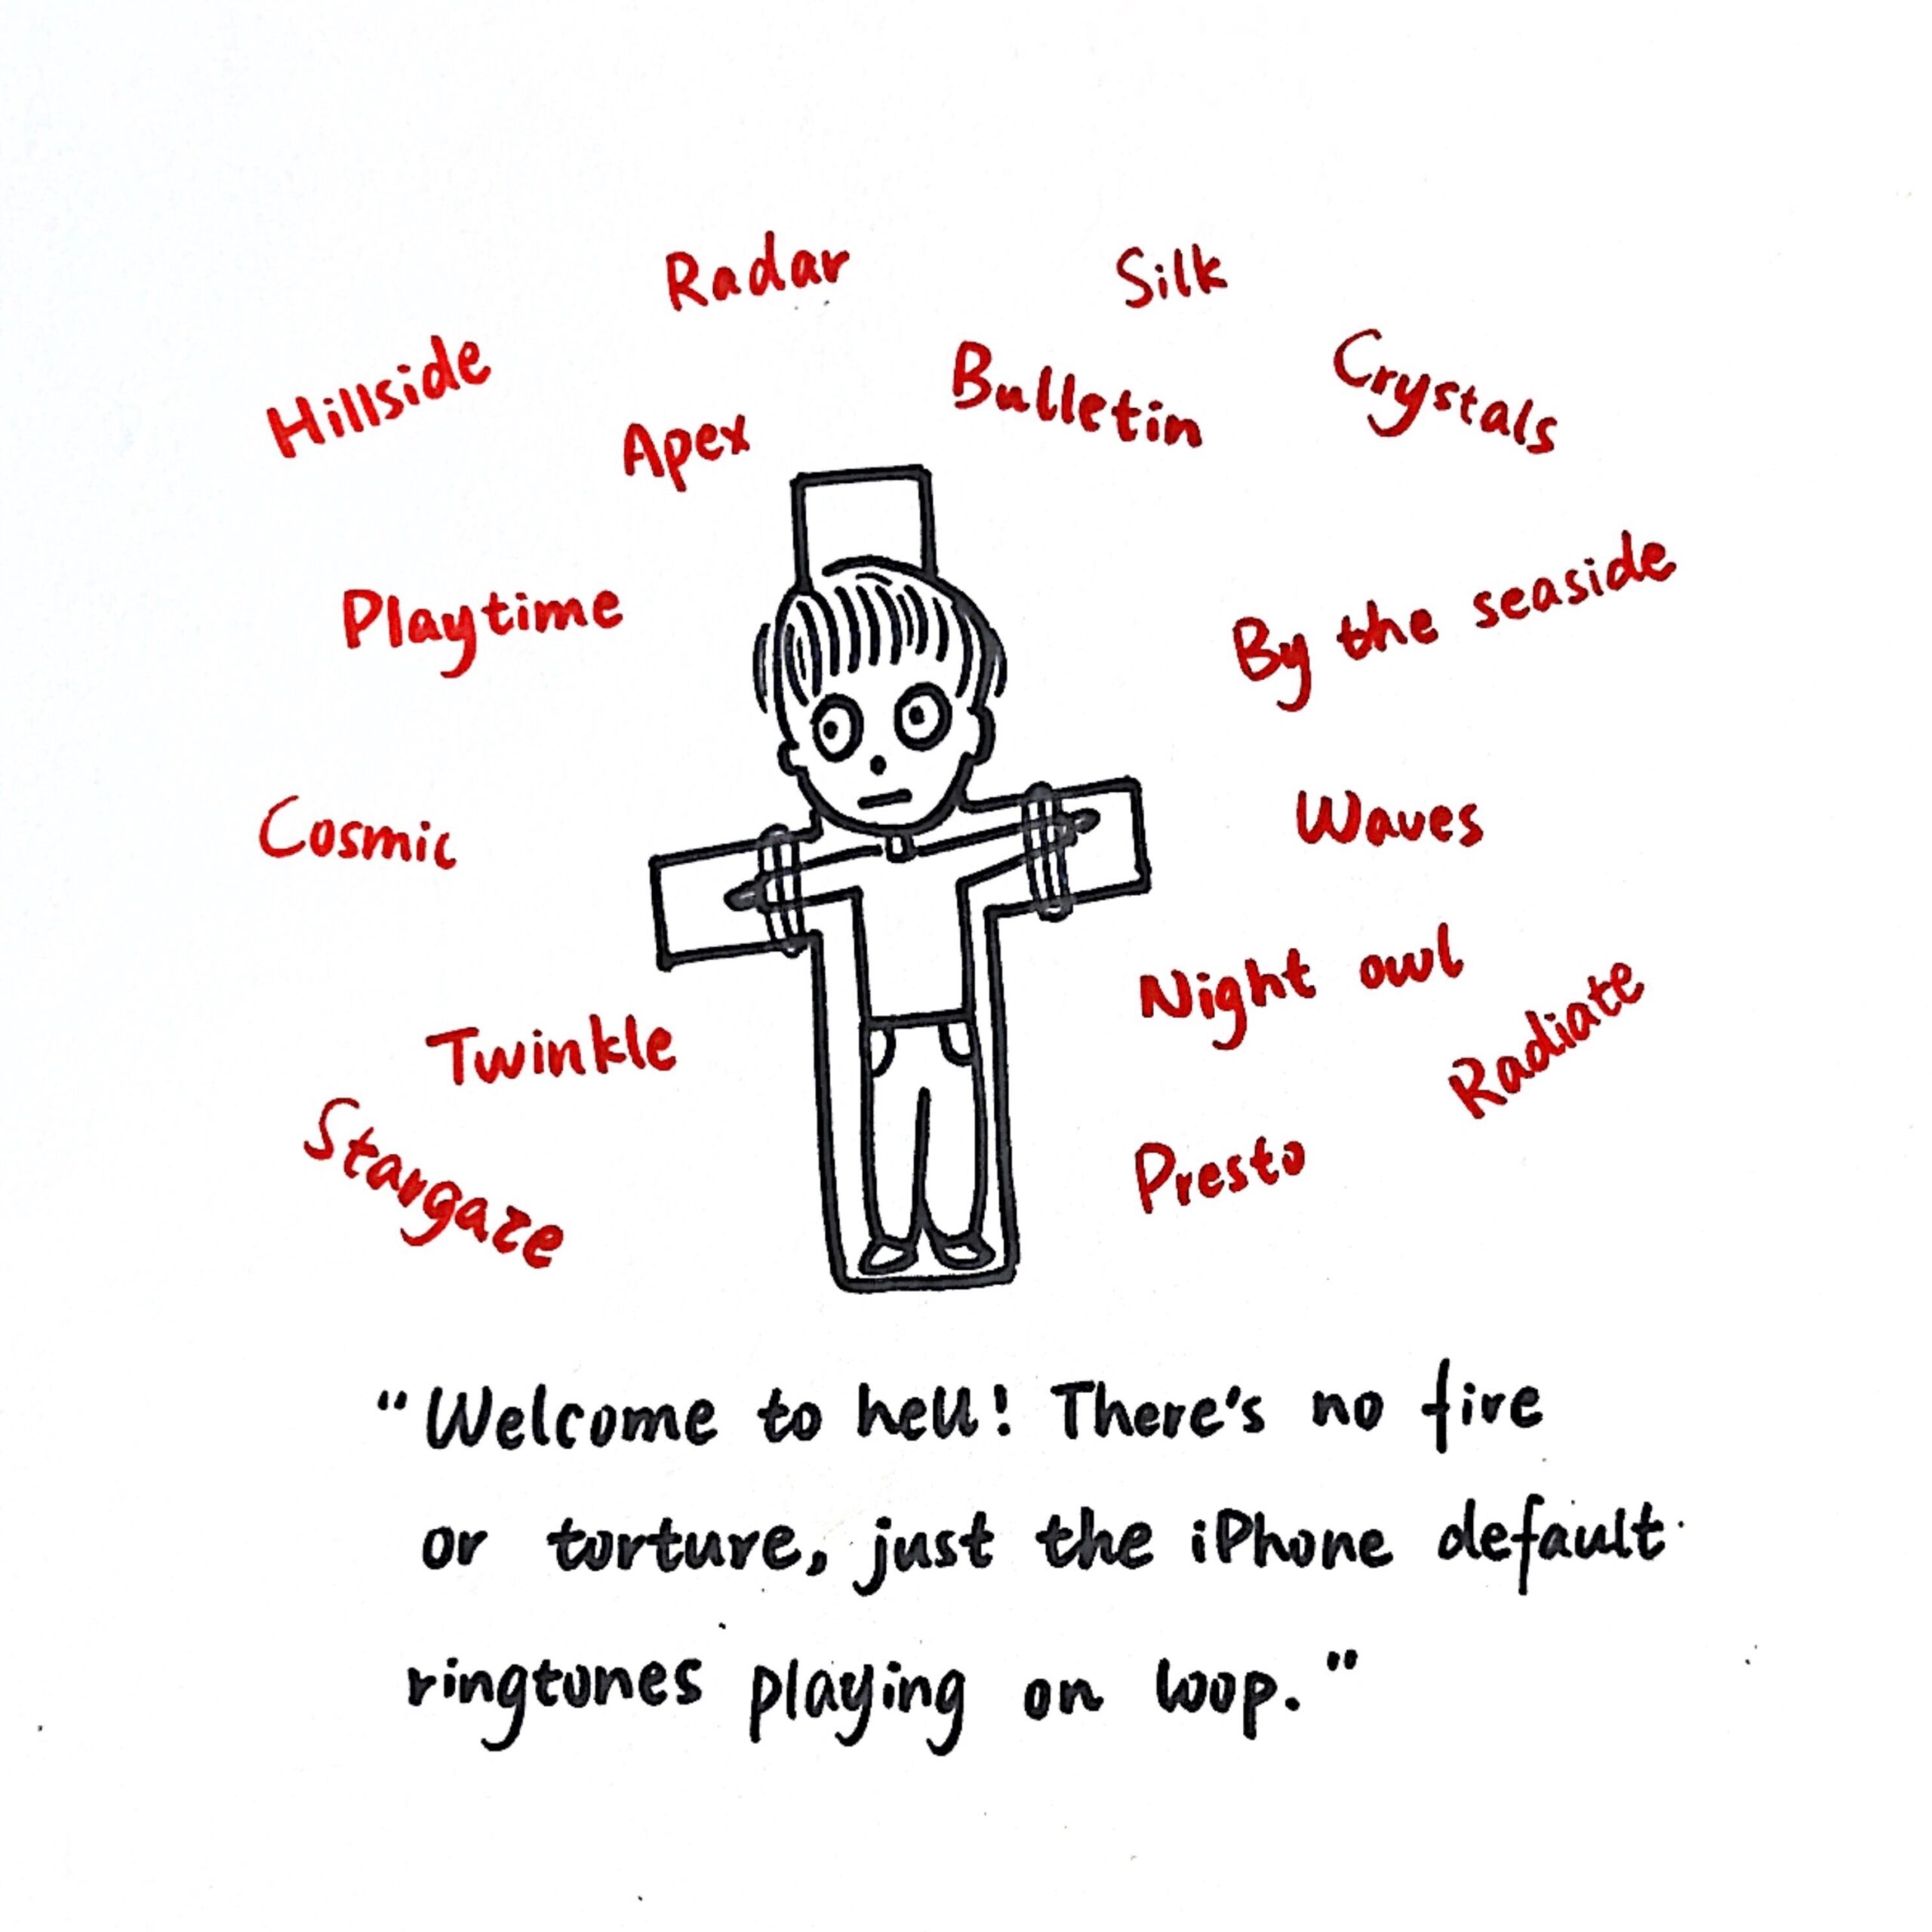 Radar
Silk
Hillside
Apex
Bulletin
Crystals
Playtime
By the seaside
Cosmic
Waves
Night owl
Radiate
Twinkle
Stargaze
Presto
"Welcome to hell! There's no fire
or torture, just the iPhone default
ringtones playing on loop."